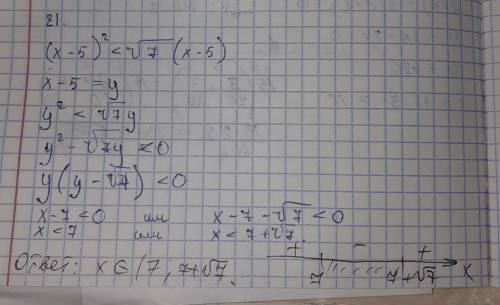 21.
(x-5)² < √7 (x-5)
x-5 = y
y² < √7y
y² - √7y < 0
y(y-√7) < 0
x-7<0 или x-7-√7<0
x<7 или x<7+√7
+ - +
7 7+√7 x
Ответ: x∈(7, 7+√7